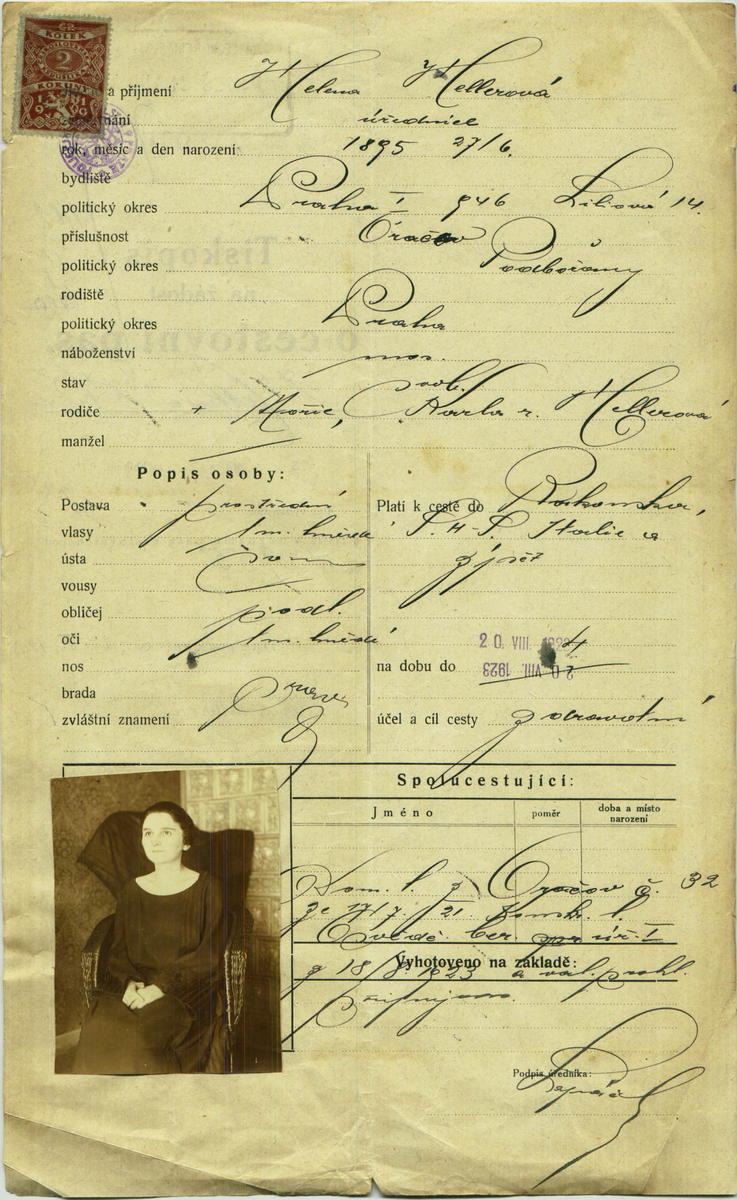 KOLEK
2
KORUNY
a příjmení Helena Hellerová
úřednice
rok, měsíc a den narození 1895 27/6.
bydliště
politický okres Praha I 946 Liliová 14.
příslušnost Oračov
politický okres Podbořany
rodiště
politický okres Praha
náboženství mos.
stav svob.
rodiče + Mořic, Karla r. Hellerová
manžel
Popis osoby:
Postava prostřední
vlasy tm. hnědé
ústa
vousy
obličej podl.
oči tm. hnědé
nos
brada
zvláštní znamení
Platí k cestě do Rakouska,
Italie a
zpět
na dobu do 20. VIII. 1924
20. VIII. 1923
účel a cíl cesty zdravotní
Spolucestující:
Jméno
poměr
doba a místo narození
Dom. l. z Oračov č. 32
ze 17/7 21
Vyhotoveno na základě:
z 18/8 1923 a
Podpis úředníka: